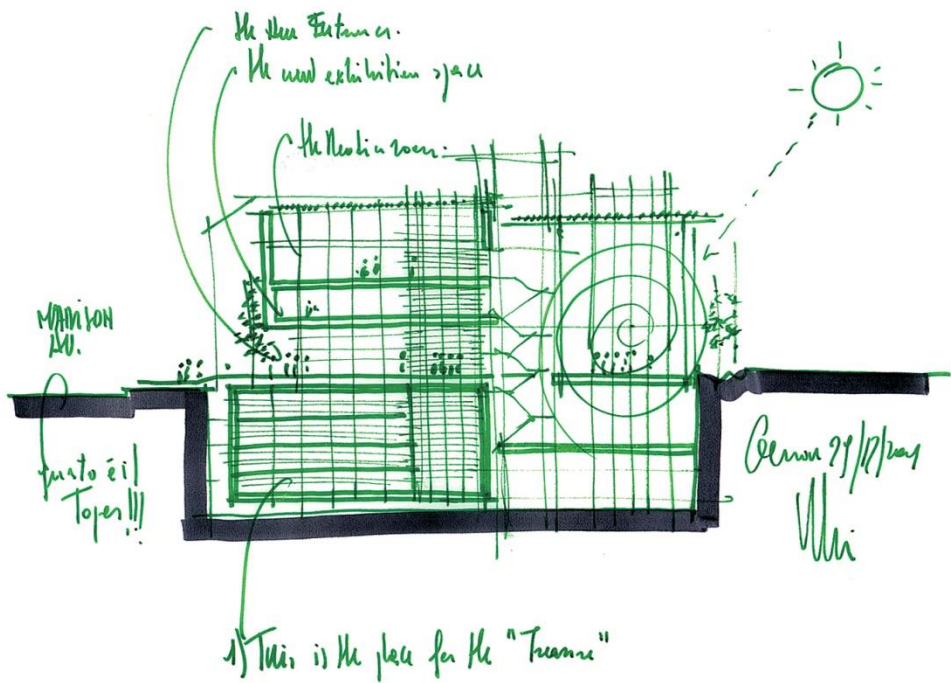 the new Entrance.
the new exhibition space
the Reading room.
MADISON
AV.
questo è il
Topos!!!
Genova 29/12/2001
1) This is the place for the "Treasure"